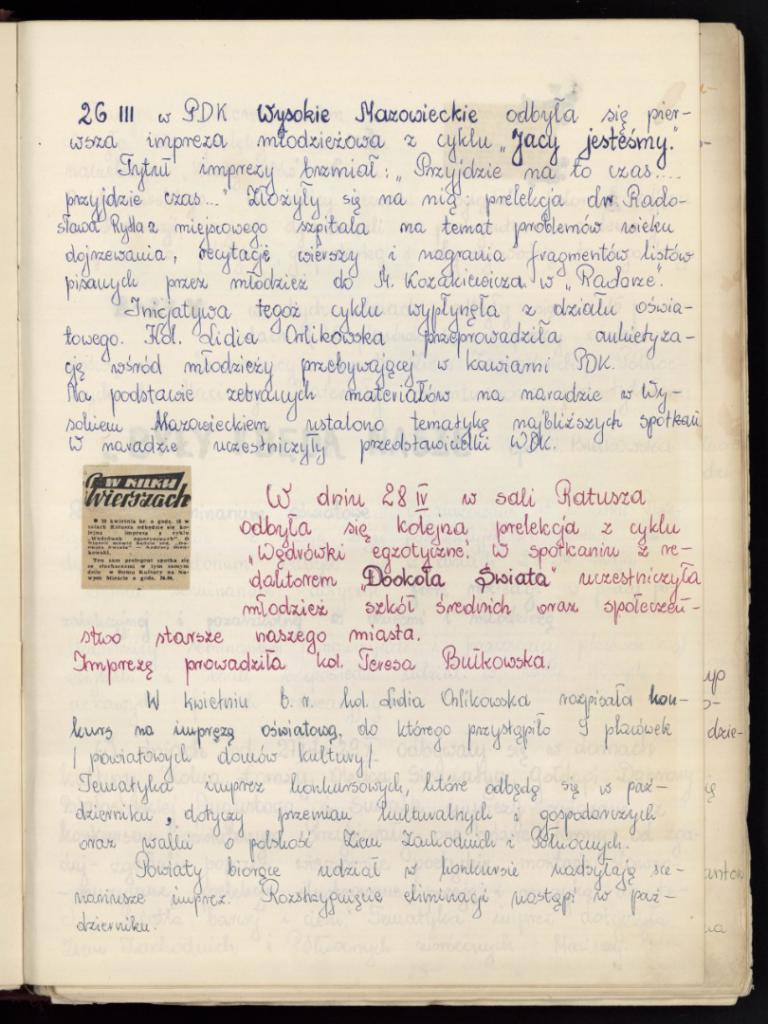 26 III w PDK Wysokie Mazowieckie odbyła się pier-
wsza impreza młodzieżowa z cyklu „Jacy jesteśmy."
Tytuł imprezy brzmiał: „Przyjdzie na to czas....
przyjdzie czas..." Złożyły się na nią: prelekcja dr Rado-
sława Rydla z miejscowego szpitala na temat problemów wieku
dojrzewania, recytacje wierszy i nagrania fragmentów listów
pisanych przez młodzież do M. Kozakiewicza w „Radarze".
Inicjatywa tegoż cyklu wypłynęła z działu oświa-
towego. Kol. Lidia Orlikowska przeprowadziła ankietyza-
cję wśród młodzieży przebywającej w kawiarni PDK.
Na podstawie zebranych materiałów na naradzie w Wy-
sokiem Mazowieckiem ustalono tematykę najbliższych spotkań
W naradzie uczestniczyły przedstawicielki WDK.
W KILKU
Wierszach
W dniu 28 IV w sali Ratusza
odbyła się kolejna prelekcja z cyklu
„Wędrówki egzotyczne". W spotkaniu z re-
daktorem „Dookoła Świata" uczestniczyła
młodzież szkół średnich oraz społeczeń-
stwo starsze naszego miasta.
Imprezę prowadziła kol. Teresa Bułkowska.
W kwietniu b.r. kol. Lidia Orlikowska rozpisała kon-
kurs na imprezę oświatową, do którego przystąpiło 9 placówek
/ powiatowych domów kultury/.
Tematyka imprez konkursowych, które odbędą się w paź-
dzierniku, dotyczy przemian kulturalnych i gospodarczych
oraz walki o polskość Ziem Zachodnich i Północnych.
Powiaty biorące udział w konkursie nadsyłają sce-
nariusze imprez. Rozstrzygnięcie eliminacji nastąpi w paź-
dzierniku.